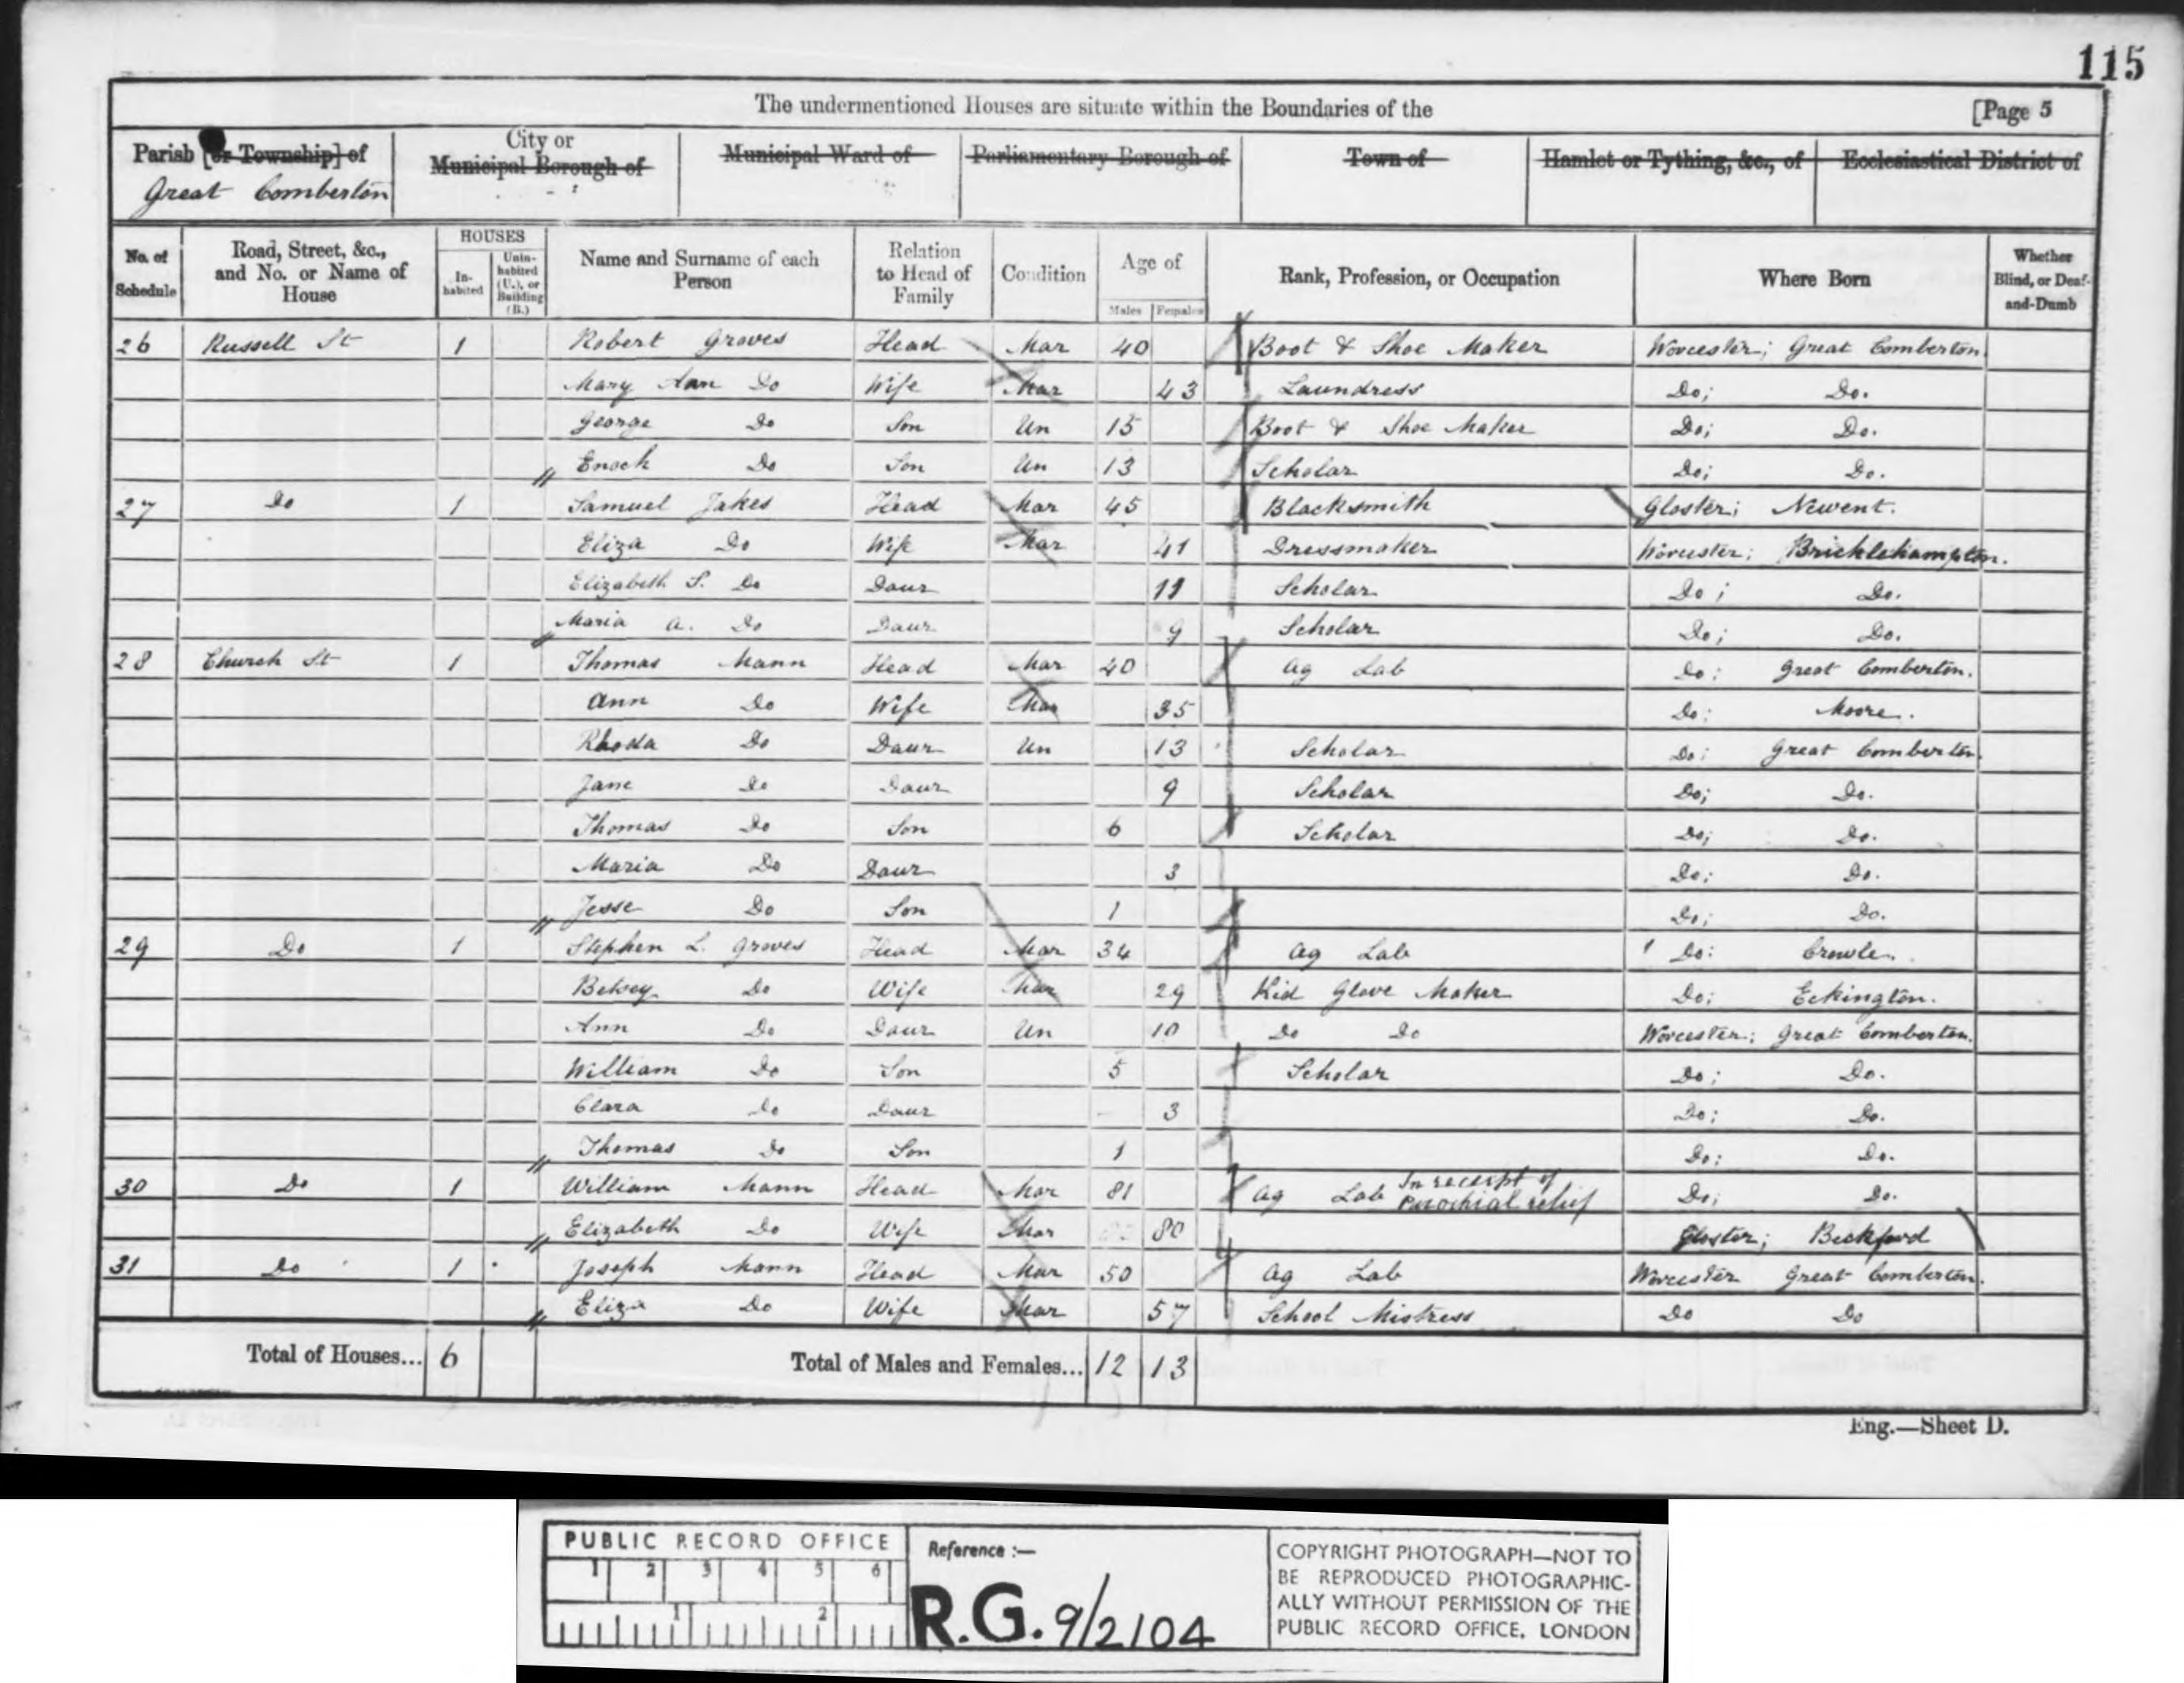 115
The undermentioned Houses are situate within the Boundaries of the [Page 5
Parish [or Township] of City or Municipal Borough of Municipal Ward of Parliamentary Borough of Town of Hamlet or Tything, &c., of Ecclesiastical District of
Great Comberton
No. of Schedule Road, Street, &c., and No. or Name of House HOUSES In-habited Unin-habited (U.), or Building (B.) Name and Surname of each Person Relation to Head of Family Condition Age of Males Females Rank, Profession, or Occupation Where Born Whether Blind, or Deaf-and-Dumb
26 Russell St 1 Robert Groves Head Mar 40 Boot & Shoe Maker Worcester; Great Comberton
Mary Ann Do Wife Mar 43 Laundress Do; Do.
George Do Son Un 15 Boot & Shoe Maker Do; Do.
Enoch Do Son Un 13 Scholar Do; Do.
27 Do 1 Samuel Jakes Head Mar 45 Blacksmith Gloster; Newent.
Eliza Do Wife Mar 41 Dressmaker Worcester; Bricklehampton.
Elizabeth S. Do Daur 11 Scholar Do; Do.
Maria A. Do Daur 9 Scholar Do; Do.
28 Church St 1 Thomas Mann Head Mar 40 Ag Lab Do; Great Comberton.
Ann Do Wife Mar 35 Do; Moore.
Rhoda Do Daur Un 13 Scholar Do; Great Comberton.
Jane Do Daur 9 Scholar Do; Do.
Thomas Do Son 6 Scholar Do; Do.
Maria Do Daur 3 Do; Do.
Jesse Do Son 1 Do; Do.
29 Do 1 Stephen L. Groves Head Mar 34 Ag Lab Do: Crowle.
Betsey Do Wife Mar 29 Kid Glove Maker Do; Eckington.
Ann Do Daur Un 10 Do Do Worcester; Great Comberton.
William Do Son 5 Scholar Do; Do.
Clara Do Daur 3 Do; Do.
Thomas Do Son 1 Do; Do.
30 Do 1 William Mann Head Mar 81 Ag Lab In receipt of Parochial relief Do; Do.
Elizabeth Do Wife Mar 80 Gloster; Beckford
31 Do 1 Joseph Mann Head Mar 50 Ag Lab Worcester Great Comberton.
Eliza Do Wife Mar 57 School Mistress Do Do
Total of Houses... 6 Total of Males and Females... 12 13
Eng.—Sheet D.
PUBLIC RECORD OFFICE
1 2 3 4 5 6
1 2
Reference :—
R.G. 9/2104
COPYRIGHT PHOTOGRAPH—NOT TO
BE REPRODUCED PHOTOGRAPHIC-
ALLY WITHOUT PERMISSION OF THE
PUBLIC RECORD OFFICE, LONDON